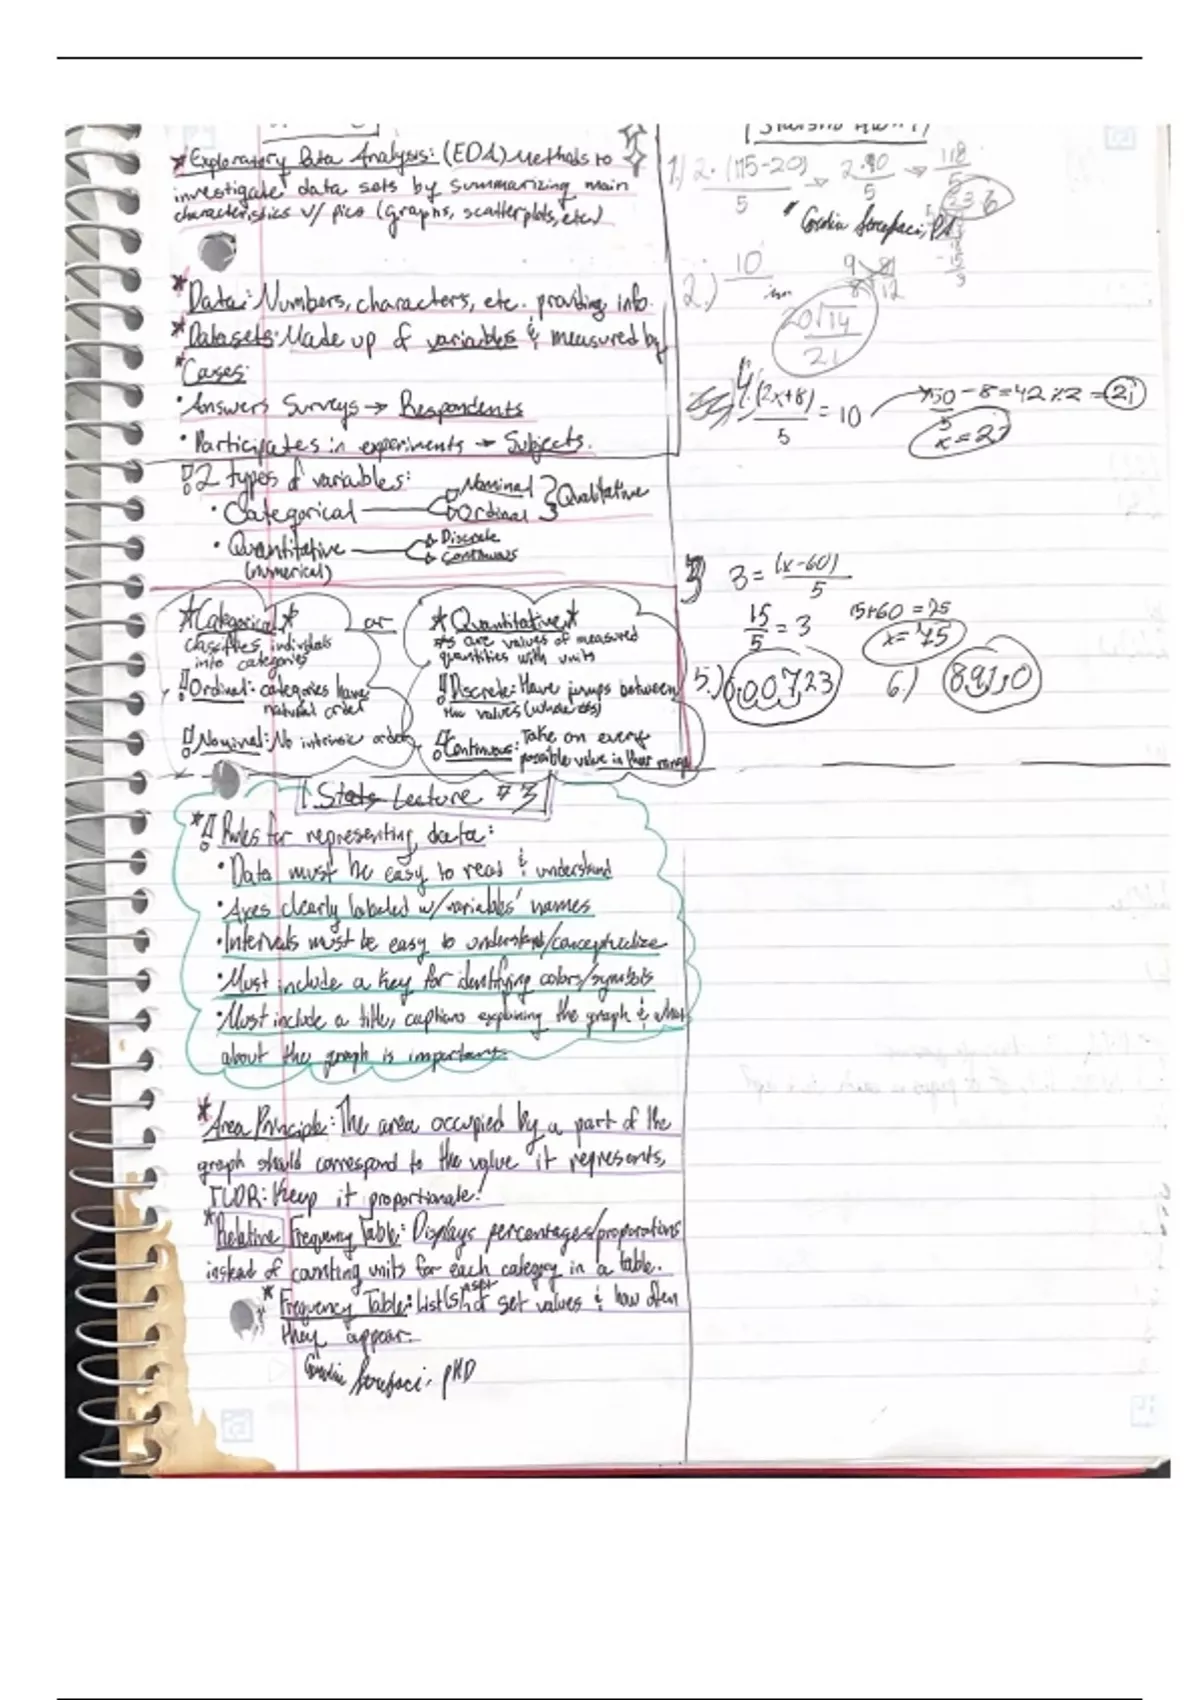 * Exploratory Data Analysis: (EDA) Methods to
investigate data sets by summarizing main
characteristics w/ pics (graphs, scatterplots, etc.)
* Data: Numbers, characters, etc. providing info.
* Datasets: Made up of variables & measured by
* Cases:
• Answers Surveys → Respondents
• Participates in experiments → Subjects.
2 types of variables:
• Categorical
Nominal
Ordinal
Qualitative
• Quantitative
(numerical)
Discrete
Continuous
* Categorical *
classifies individuals
into categories
Ordinal: categories have
natural order
Nominal: No intrinsic order
or
* Quantitative *
#s are values of measured
quantities with units
Discrete: Have jumps between
the values (whole #s)
Continuous: Take on every
possible value in their range
Stats Lecture #3
* Rules for representing data:
• Data must be easy to read & understand
• Axes clearly labeled w/ variables' names
• Intervals must be easy to understand/conceptualize
• Must include a key for identifying colors/symbols
• Must include a title, captions explaining the graph & what
about the graph is important.
* Area Principle: The area occupied by a part of the
graph should correspond to the value it represents,
TLDR: Keep it proportionate!
* Relative Frequency Table: Displays percentages/proporations
instead of counting units for each category in a table.
* Frequency Table: List(s) of set values & how often
they appear.
PHD
1.) 2 · (115-20)
5
118
5
23.6
2.)
10
20√14
21
4. (2x+8)
5
= 10
50 - 8 = 42 ÷ 2 = 21
x = 21
3 3 = (x-60)
5
15
5
= 3
15+60 = 75
x = 75
5.)
6.)